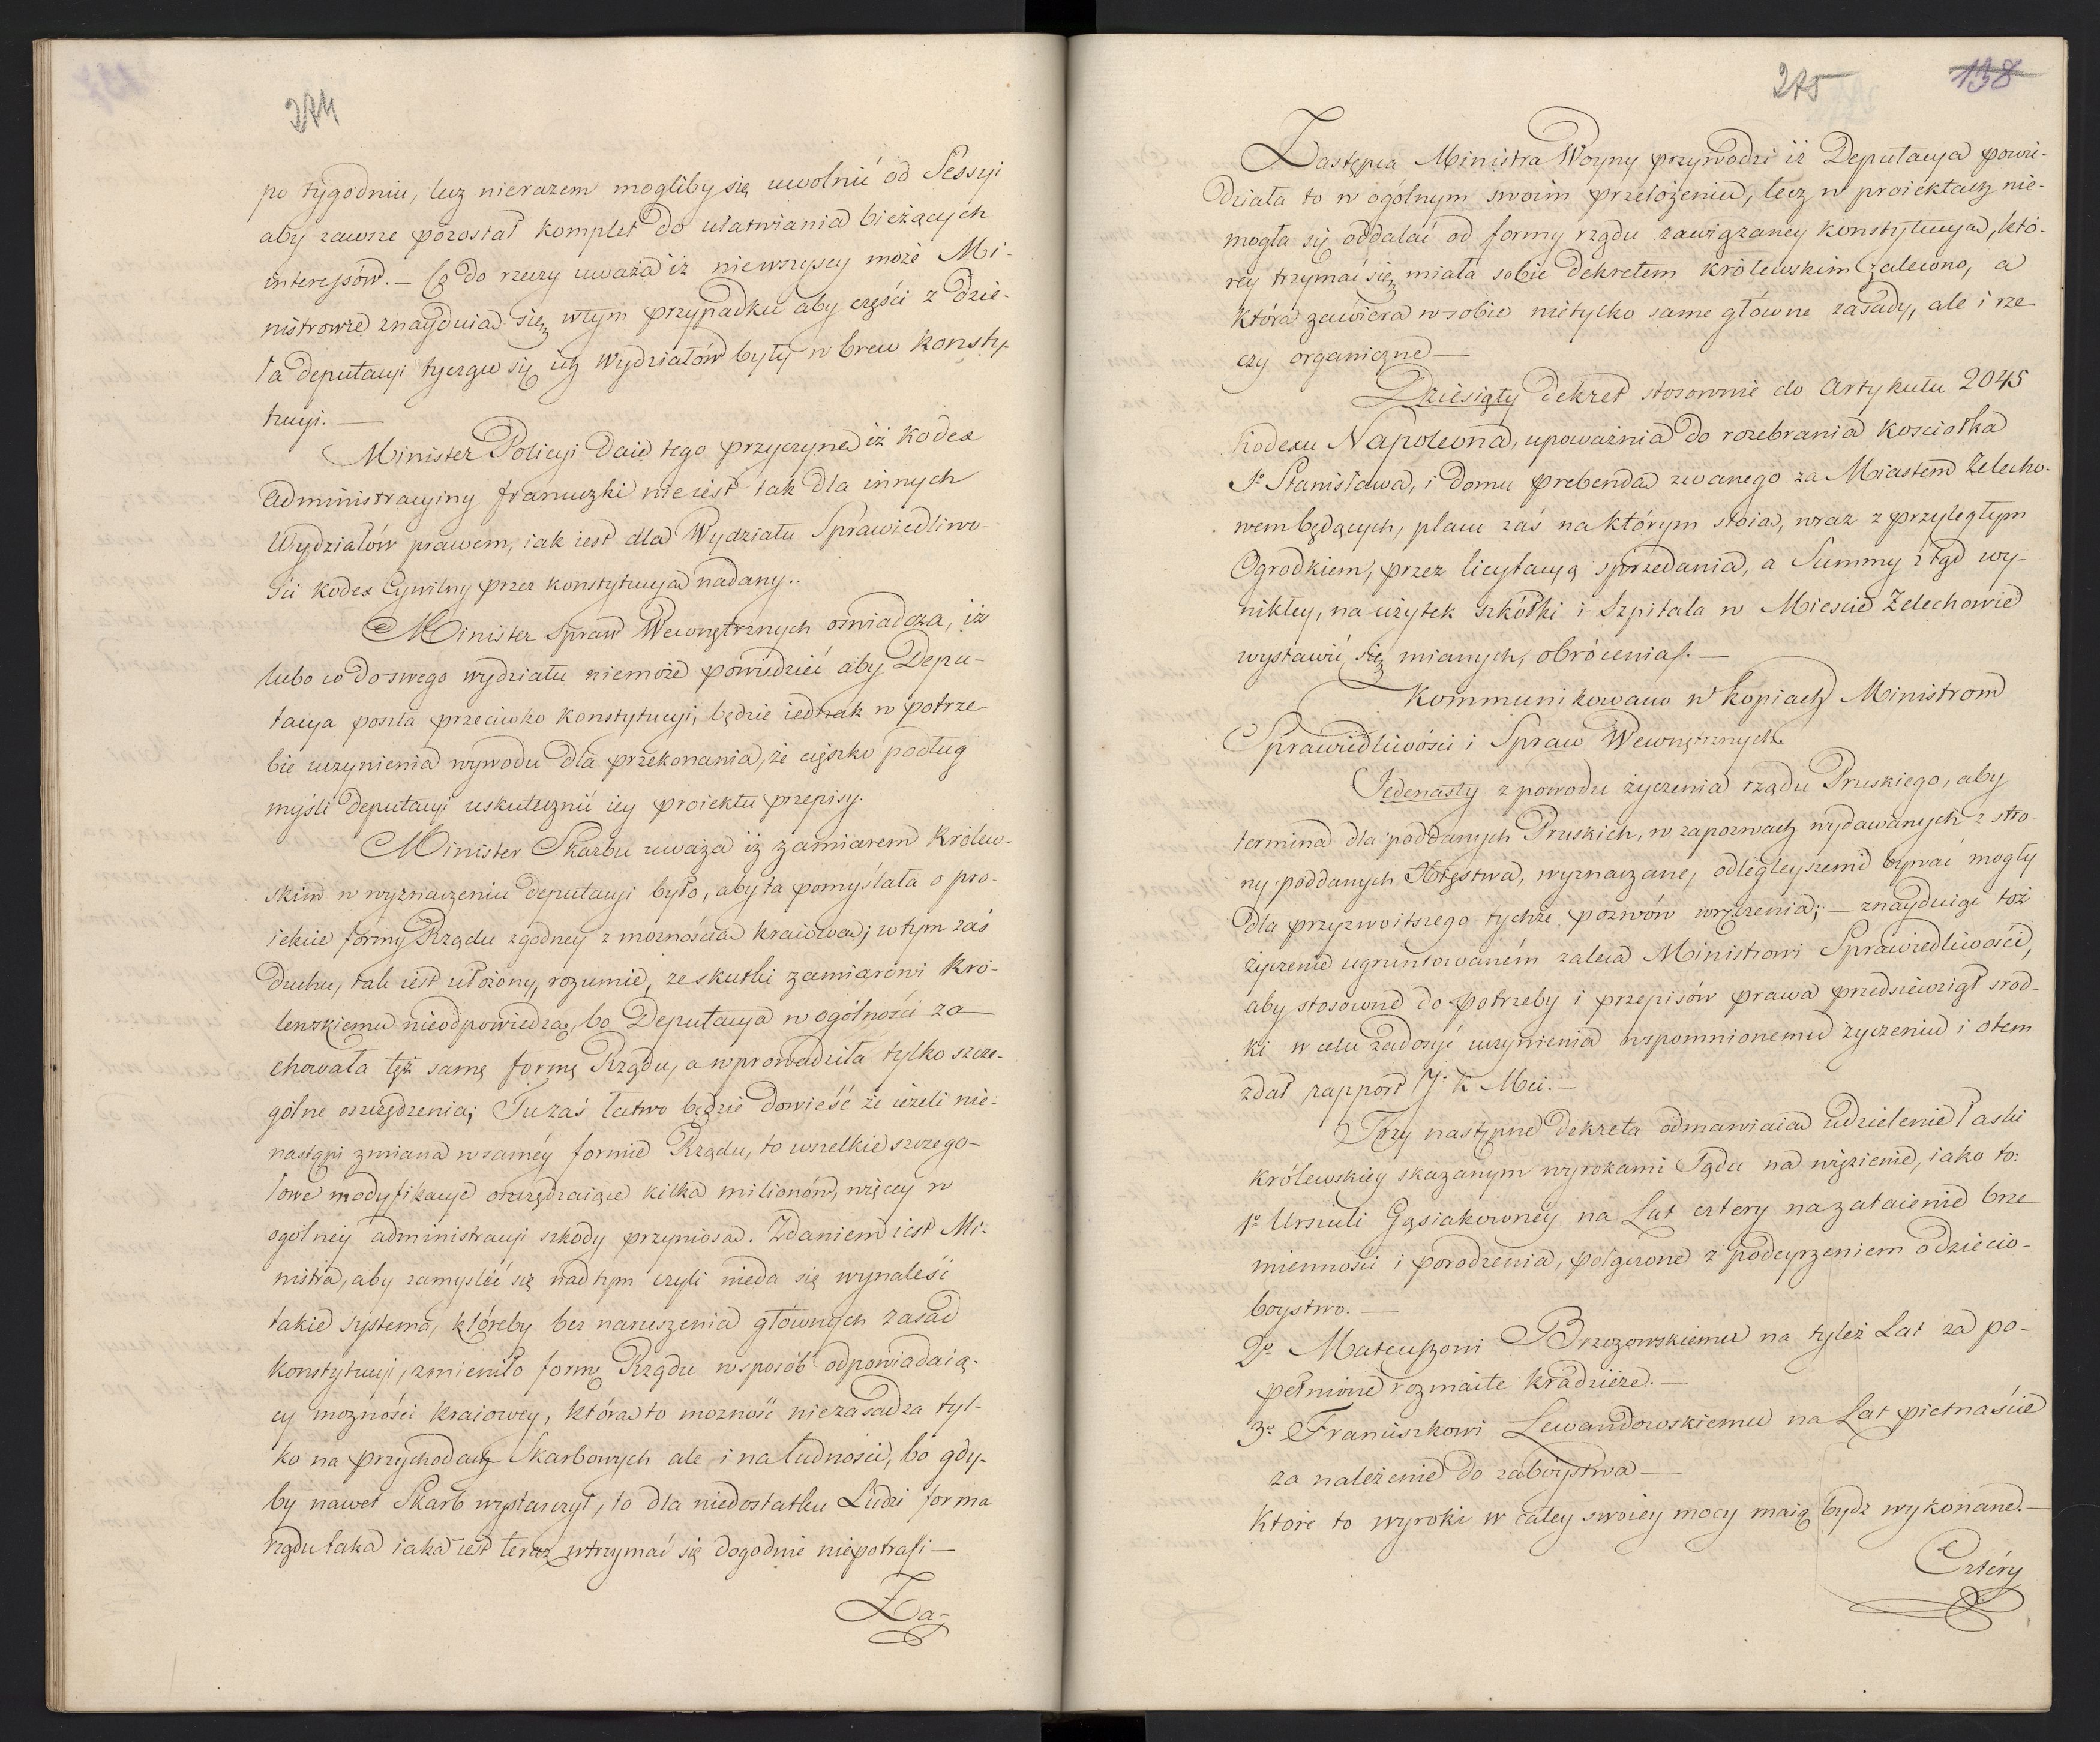 274
po tygodniu, lecz nierazem mogliby się uwolnić od Sessyi
aby zawsze pozostał komplet do ułatwiania bieżących
interessów. — Co do rzeczy uważa iż niewszyscy może Mi-
nistrowie znayduią się wtym przypadku aby części z dzie-
ła deputacyi tyczące się ich Wydziałów były wbrew konsty-
tucyi. —
Minister Policyi daie tego przyczynę iż kodex
Administracyiny francuzki nie iest tak dla innych
Wydziałów prawem, iak iest dla Wydziału Sprawiedliwo-
ści kodex Cywilny przez konstytucyą nadany..
Minister Spraw Wewnętrznych oświadcza, iż
lubo co do swego wydziału niemoże powiedzieć aby Depu-
tacya poszła przeciwko konstytucyi, będzie iednak w potrze-
bie uczynienia wywodu dla przekonania, że ciężko podług
myśli Deputacyi uskutecznić iey proiektu przepisy.
Minister Skarbu uważa iż zamiarem królew-
skim w wyznaczeniu deputacyi było, aby ta pomyślała o pro-
iekcie formy Rządu zgodney z możnością kraiową; w tym zaś
duchu, tak iest ułożony, rozumie, że skutki zamiarowi kró-
lewskiemu nieodpowiedzą, bo Deputacya w ogólności za-
chowała też samę formę Rządu, a wprowadziła tylko szcze-
gólne oszczędzenia; Tu zaś łatwo będzie dowieść że ieżeli nie-
nastąpi zmiana w saméy formie Rządu, to wszelkie szczegó-
łowe modyfikacye oszczędzaiące kilka milionów, więcey w
ogólney administracyi szkody przyniosą. Zdaniem iest Mi-
nistra, aby zamyslić się nad tym czyli nieda się wynaleść
takie systema, któreby bez naruszenia głównych zasad
konstytucyi, zmieniło formę Rządu w sposób odpowiadaią-
cy możności kraiowey, która to możność niezasadza tyl-
ko na przychodach Skarbowych ale i na ludności, bo gdy-
by nawet Skarb wystarczył, to dla niedostatku Ludzi forma
rządu taka iaka iest teraz utrzymać się dogodnie niepotrafi —
Za-
275 138
Zastępca Ministra Woyny przywodzi iż Deputacya powie-
działa to w ogólnym swoim przełożeniu, lecz w proiektach nie-
mogła się oddalać od formy rządu zawiązaney konstytucyą, któ-
rey trzymać się miała sobie dekretem królewskim zalecono, a
która zawiera w sobie nietylko same główne zasady, ale i rze
czy organiczne —
Dziesiąty dekret stosownie do Artykułu 2045
kodexu Napoleona, upoważnia do rozebrania kosciołka
Sgo Stanisława, i domu prebenda zwanego za Miastem Zelecho-
wem będących, placu zaś na którym stoią, wraz z przyległym
Ogrodkiem, przez licytacyą sprzedania, a Summy ztąd wy-
nikłey, na użytek szkółki i Szpitala w Miescie Zelechowie
wystawić się mianych, obrócenia. —
Kommunikowano w kopiach Ministrom
Sprawiedliwości i Spraw Wewnętrznych
Jedenasty z powodu życzenia rządu Pruskiego, aby
termina dla poddanych Pruskich, w zapozwach wydawanych z stro-
ny poddanych Xtęstwa, wyznaczane, odległeyszemi bywać mogły
dla przyzwoitszego tychże pozwów wręczenia; — znayduiąc toż
życzenie ugruntowaném zaleca Ministrowi Sprawiedliwości,
aby stosowne do potrzeby i przepisów prawa przedsięwziął srod-
ki w celu zadosyć uczynienia wspomnionemu życzeniu i otem
zdał rapport J. K. Mci. —
Trzy następne dekreta odmawiaią udzielenie łaski
królewskiey skazanym wyrokami Sądu na więzienie, iako to:
1o Urszuli Gąsiakowney na Lat cztery na zataienie brze
mienności i porodzenia, połączone z podeyrzeniem o dziecio-
boystwo. —
2o Mateuszowi Brzozowskiemu na tyleż Lat za po-
pełnione rozmaite kradzieże. —
3o Franciszkowi Lewandowskiemu na Lat pietnaście
za należenie do zaboystwa —
które to wyroki w całey swoiey mocy maią bydz wykonane. —
Cztéry